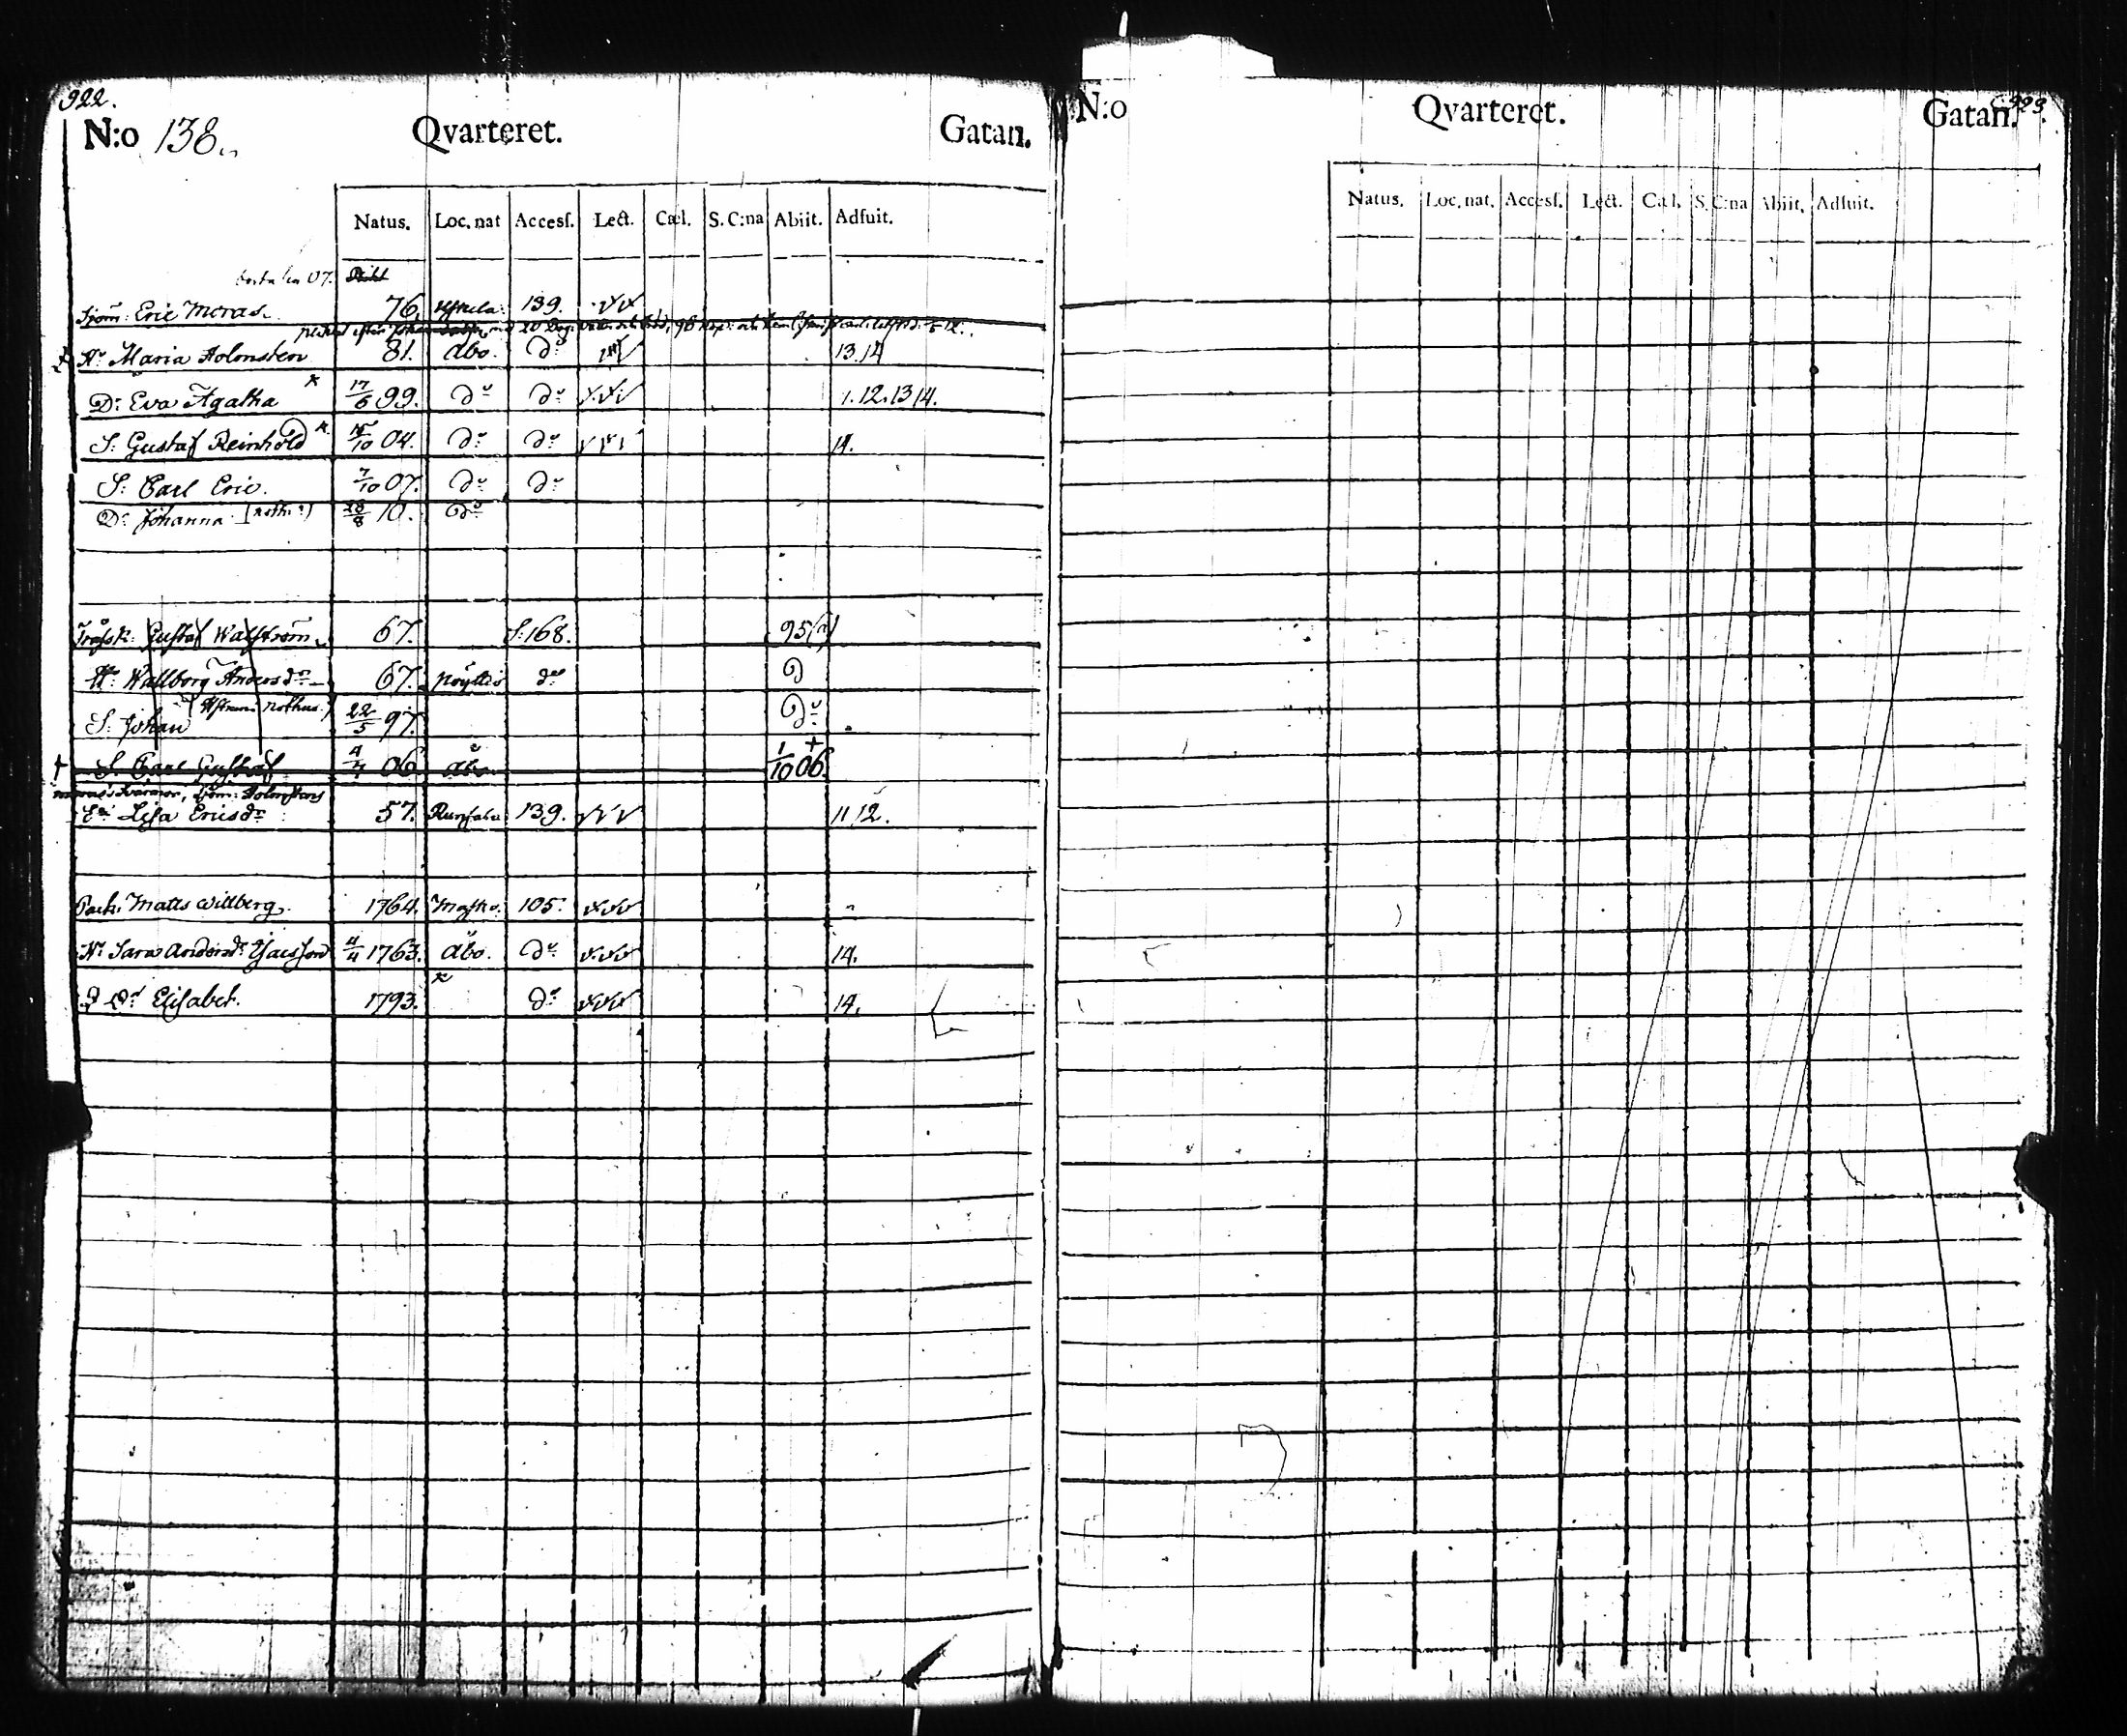 922.
N:o 138. Qvarteret. Gatan.
Natus. Loc. nat Accesſ. Lect. Cæl. S. C:na Abiit. Adfuit.
07.
Sjöm: Eric Moras. 76. 139.
H:u Maria Holmsten 81. Åbo. D:o 13.14
D:r Eva Agatha 17/6 99. D:o D:o 1.12.13 14.
S: Gustaf Reinhold 15/10 04. D:o D:o 14.
S: Carl Eric. 7/10 07. D:o D:o
D:r Johanna 28/8 10. D:o
Gustaf Walström 67. S:168. 95(a)
H:u Wallborg Andersd:r 67. pöyttis d:o D
S: Johan 22/5 97. D:o
S. Carl Gustaf 4/4 06 Åbo 1/10 06.
E:a Lisa Ericsd:r 57. 139. 11 12.
Matts Willberg. 1764. 105.
H:u Sara Andersd:r 4/4 1763. Åbo. D:o 14.
D:r Elisabet. 1793. D:o 14.
923.
N:o Qvarteret. Gatan.
Natus. Loc. nat. Accesſ. Lect. Cæl. S. C:na Abiit. Adfuit.